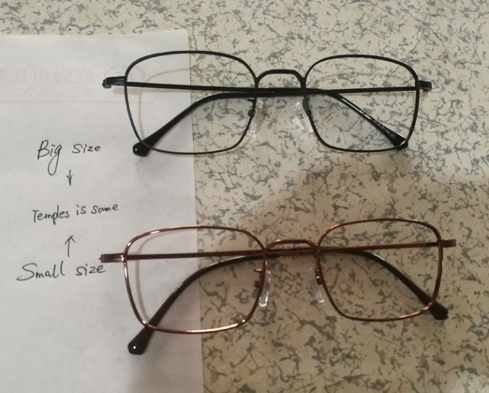 Big size
↓
Temples is same
↑
Small size